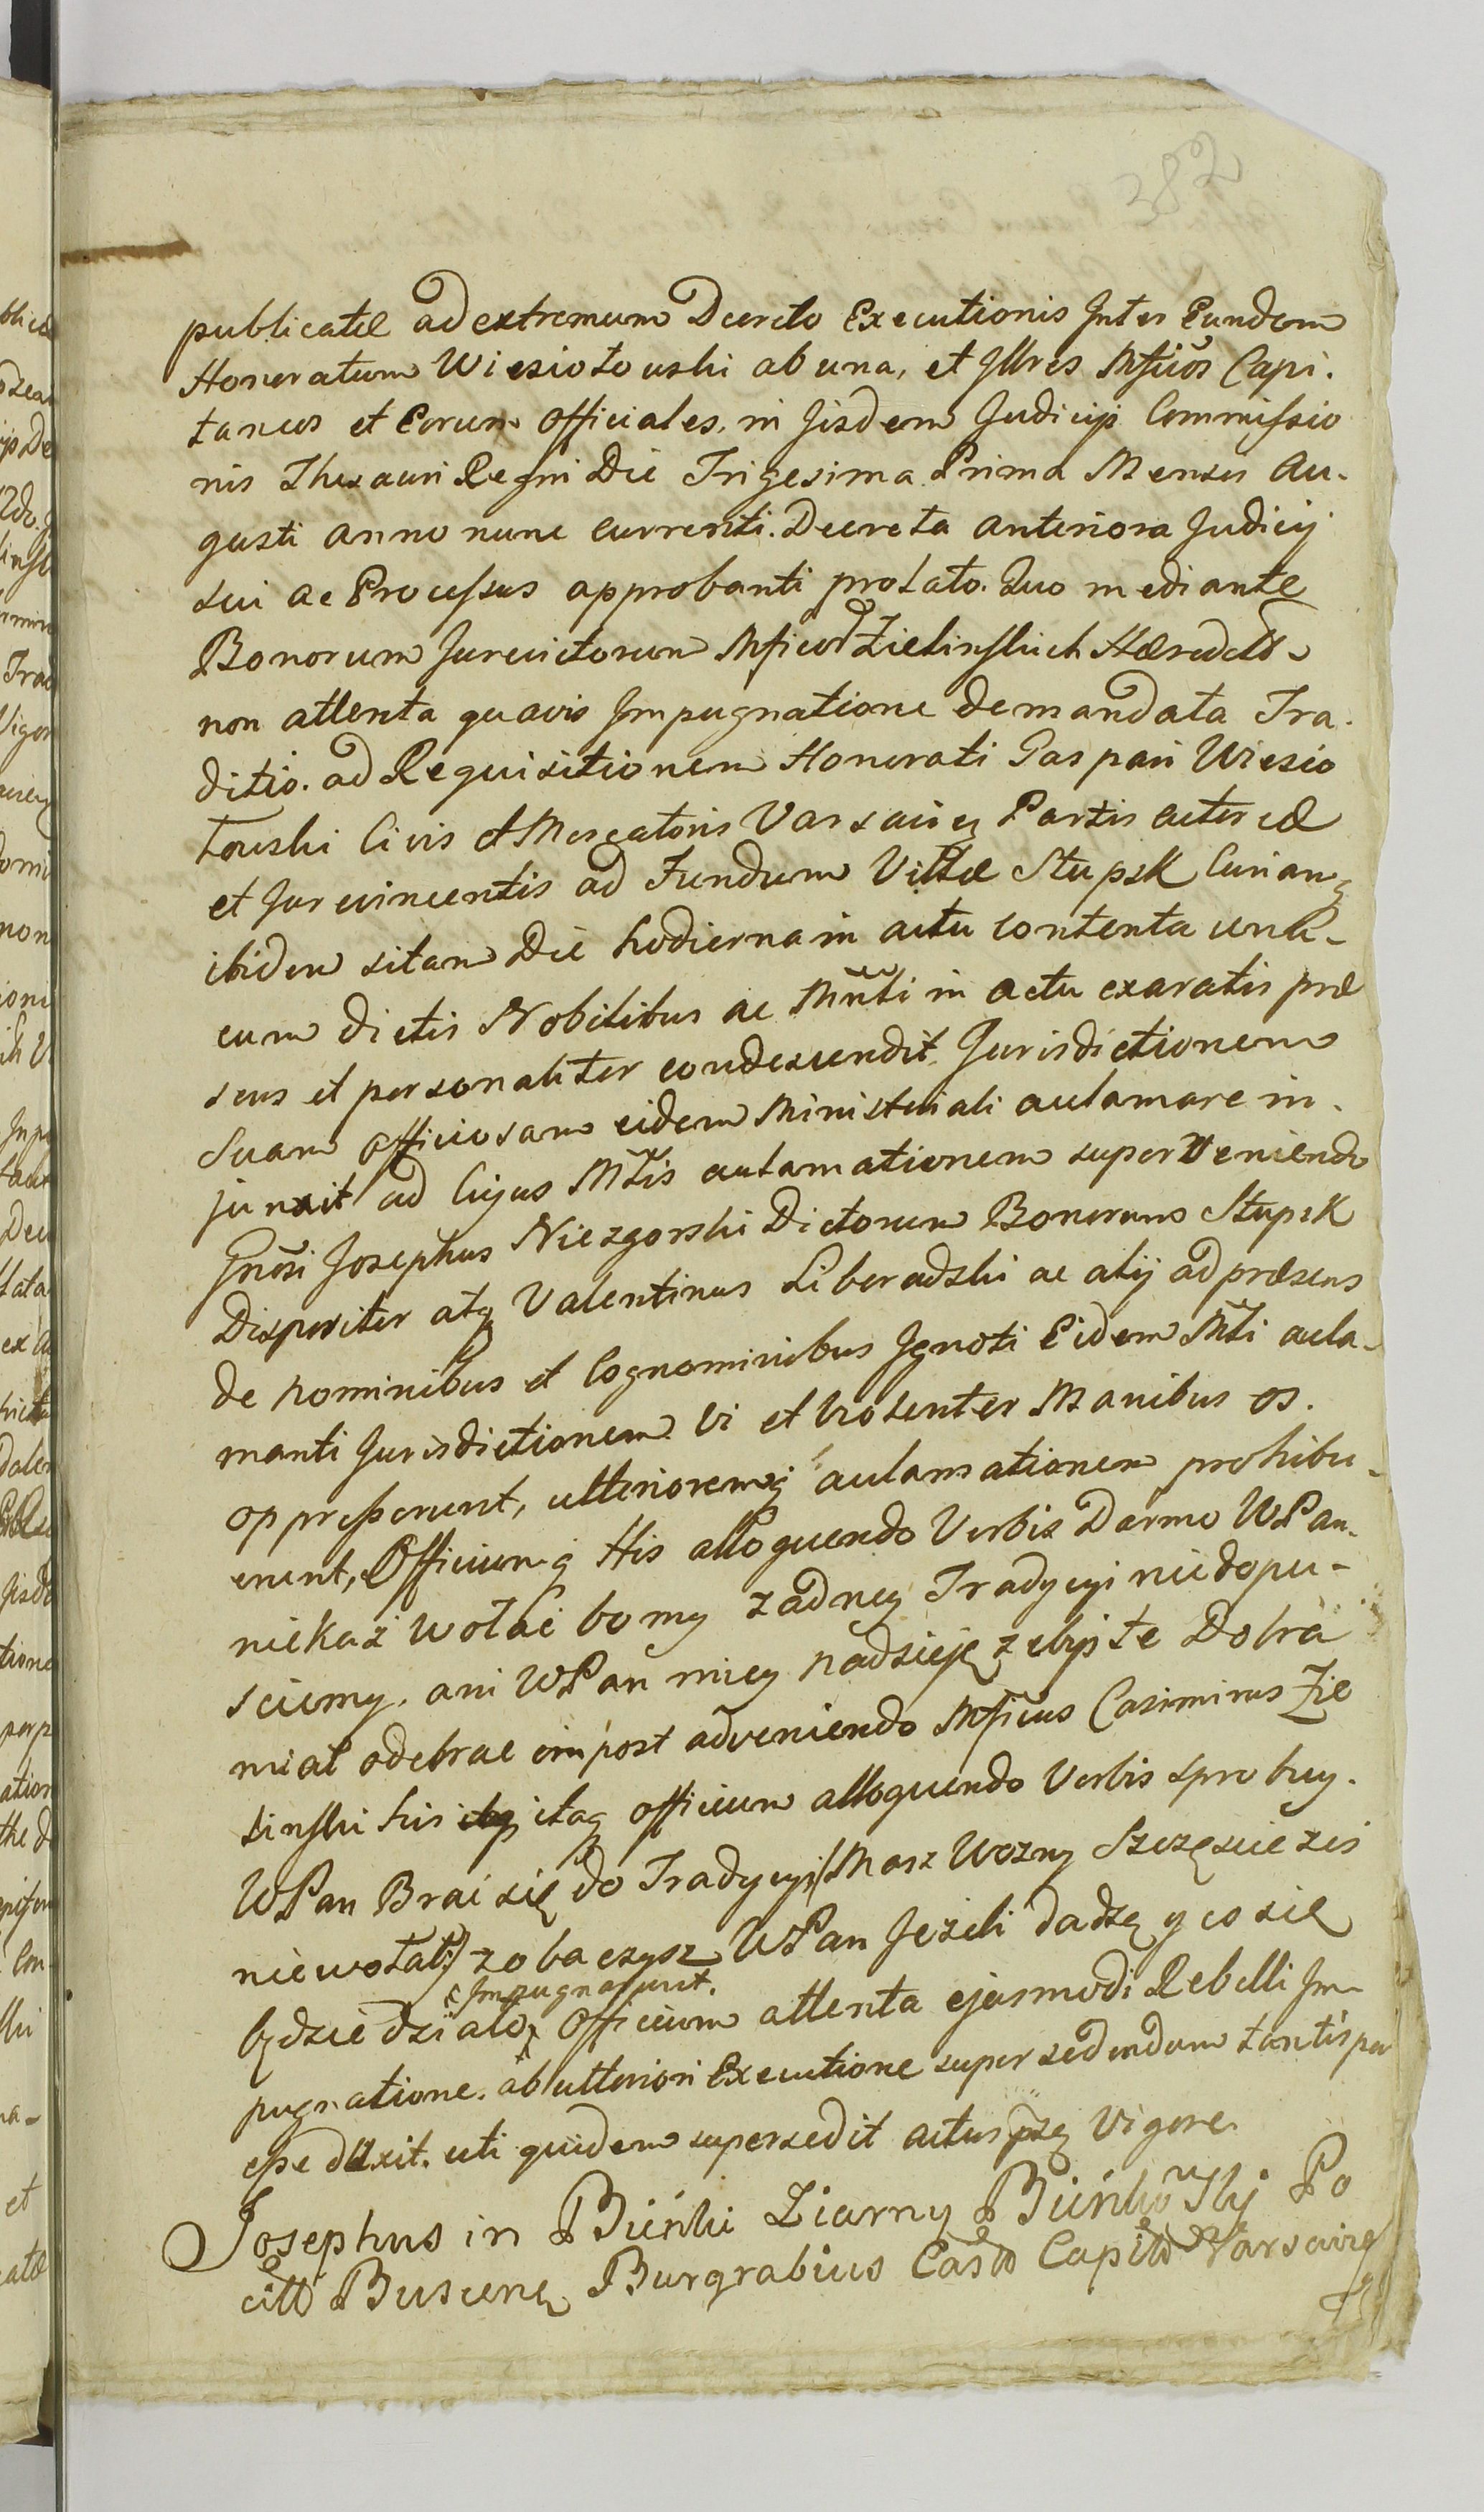 382
publicatæ ad extremum Decreto Executionis Inter Eundem
Honoratum Wiesiołowski ab una, et Illres Mficos Capi.
taneos et Eorum Officiales, in Iisdem Judicijs Commissio
nis Thesauri Regni Die Trigesima Prima Mensis Au-
gusti anno nunc currenti. Decreta anteriora Judicij
sui ac Processus approbanti prolato. Quo mediante
Bonorum Jurevictorum Mficor Zielinskich Hæredum
non attenta quavis Impugnatione demandata Tra.
ditio. ad Requisitionem Honorati Gaspari Wiesio
łowski Civis et Mercatoris Varsavien Partis actoreæ
et Jurevincentis ad Fundum Villæ Słupsk Curiamq
ibidem sitam Die hodierna in actu contenta una-
cum dictis Nobilibus ac Mnrli in actu exaratis præ
sens et personaliter condescendit, Jurisdictionem
Suam officiosam eidem Ministeriali aclamare in.
junxit ad Cujus Mrlis aclamationem superveniendo
Gnosi Josephus Niezgorski Dictorum Bonorum Słupsk
Dispositor atq Valentinus Liberadzki ac alij ad præsens
de nominibus et Cognominibus Ignoti Eidem Mrli acla-
manti Jurisdictionem Vi et Violenter Manibus os.
oppresserunt, ulterioremq aclamationem prohibu-
erunt, Officiumq His alloquendo Verbis Darmo WPan.
niekaż wołać bo my zadney Tradycyi niedopu-
sciemy, ani WPan miey nadzieję zebys te Dobra
miał odebrac impost adveniendo Mficus Casimirus Zie
linski his itaq officium alloquendo Verbis sprobuy.
WPan Brać się do Tradycyi/: Masz Wozny Szczęscie zes
niewołał:/ zobaczysz WPan Jezeli dadzą y co się
Impugnarunt.
będzie działo, Officium attenta ejusmodi Rebelli Im-
pugnatione. ab ulteriori Executione supersedendum tantisper
esse duxit. uti quidem supersedit actus psẽ Vigore.
Josephus in Bieńki Ziarny Bieńkowskj Po
cillr Buscenẽ Burgrabius Castr Capitlis Varsavień